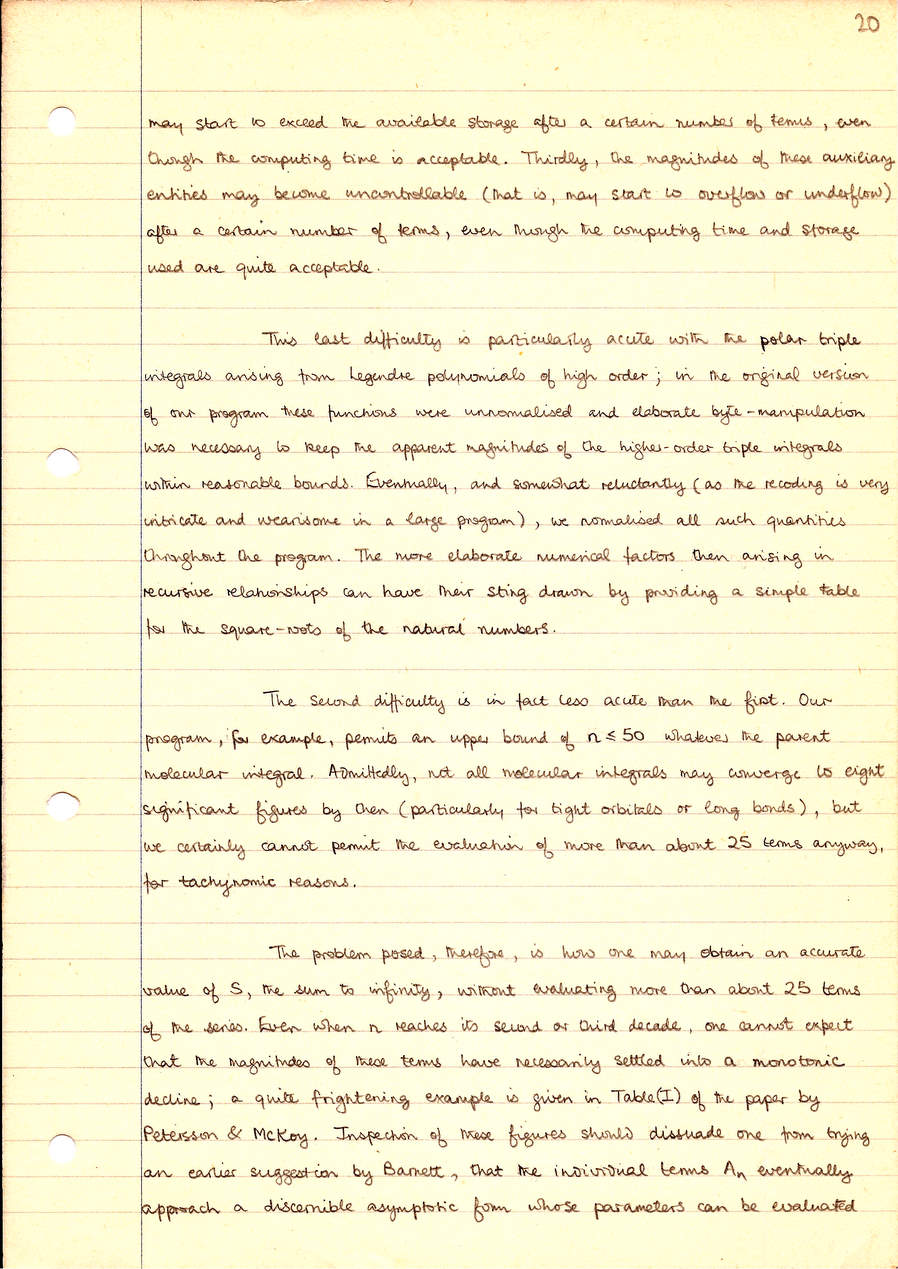 20
may start to exceed the available storage after a certain number of terms, even
though the computing time is acceptable. Thirdly, the magnitudes of these auxiliary
entities may become uncontrollable (that is, may start to overflow or underflow)
after a certain number of terms, even though the computing time and storage
used are quite acceptable.
This last difficulty is particularly acute with the polar triple
integrals arising from Legendre polynomials of high order; in the original version
of our program these functions were unnormalised and elaborate byte-manipulation
was necessary to keep the apparent magnitudes of the higher-order triple integrals
within reasonable bounds. Eventually, and somewhat reluctantly (as the recoding is very
intricate and wearisome in a large program), we normalised all such quantities
throughout the program. The more elaborate numerical factors then arising in
recursive relationships can have their sting drawn by providing a simple table
for the square-roots of the natural numbers.
The second difficulty is in fact less acute than the first. Our
program, for example, permits an upper bound of n ≤ 50 whatever the parent
molecular integral. Admittedly, not all molecular integrals may converge to eight
significant figures by then (particularly for tight orbitals or long bonds), but
we certainly cannot permit the evaluation of more than about 25 terms anyway,
for tachynomic reasons.
The problem posed, therefore, is how one may obtain an accurate
value of S, the sum to infinity, without evaluating more than about 25 terms
of the series. Even when n reaches its second or third decade, one cannot expect
that the magnitudes of these terms have necessarily settled into a monotonic
decline; a quite frightening example is given in Table(I) of the paper by
Petersson & McKoy. Inspection of these figures should dissuade one from trying
an earlier suggestion by Barnett, that the individual terms Aₙ eventually
approach a discernible asymptotic form whose parameters can be evaluated